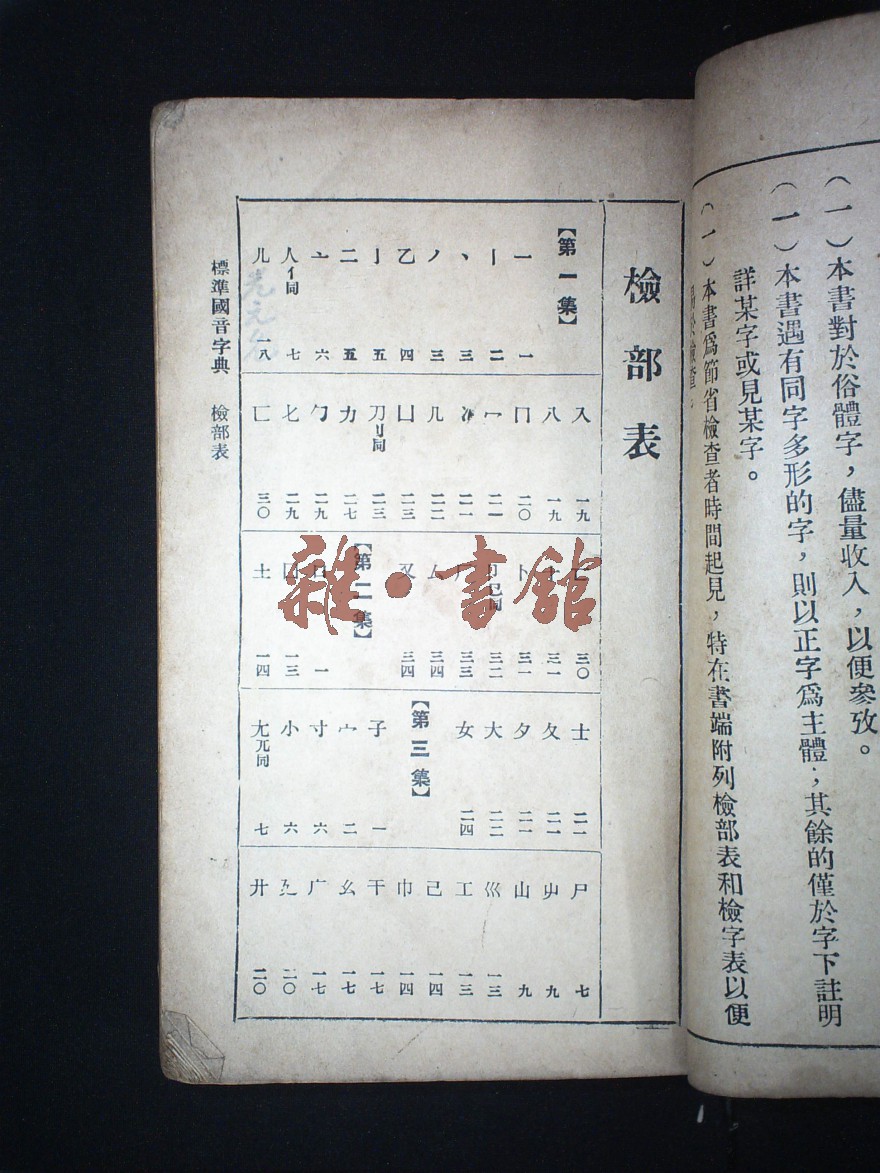 (一)本書對於俗體字,儘量收入,以便參攷。
(一)本書遇有同字多形的字,則以正字爲主體;其餘的僅於字下註明
詳某字或見某字。
(一)本書爲節省檢查者時間起見,特在書端附列檢部表和檢字表以便
檢部表
【第一集】
一 一
丨 二
丶 三
丿 三
乙 四
亅 五
二 五
亠 六
人亻同 七
儿 一八
入 一九
八 一九
冂 二〇
冖 二一
冫 二一
几 二二
凵 二三
刀刂同 二三
力 二七
勹 二九
匕 二九
匚 三〇
匸 三〇
十 三一
卜 三一
卩㔾同 三二
厂 三三
厶 三四
又 三四
【第二集】
口 一
囗 一三
土 一四
士 二一
夂 二一
夕 二一
大 二二
女 二四
【第三集】
子 一
宀 二
寸 六
小 六
尢兀同 七
尸 七
屮 九
山 九
巛 一三
工 一三
己 一四
巾 一四
干 一七
幺 一七
广 一七
廴 二〇
廾 二〇
標準國音字典 檢部表
雜·書館